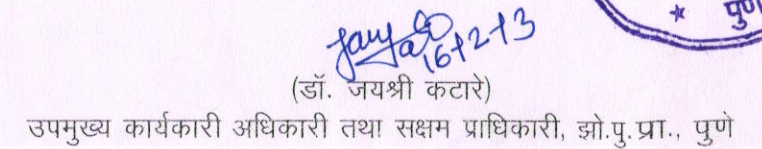 पुणे
16-12-13
(डॉ. जयश्री कटारे)
उपमुख्य कार्यकारी अधिकारी तथा सक्षम प्राधिकारी, झो.पु.प्रा., पुणे